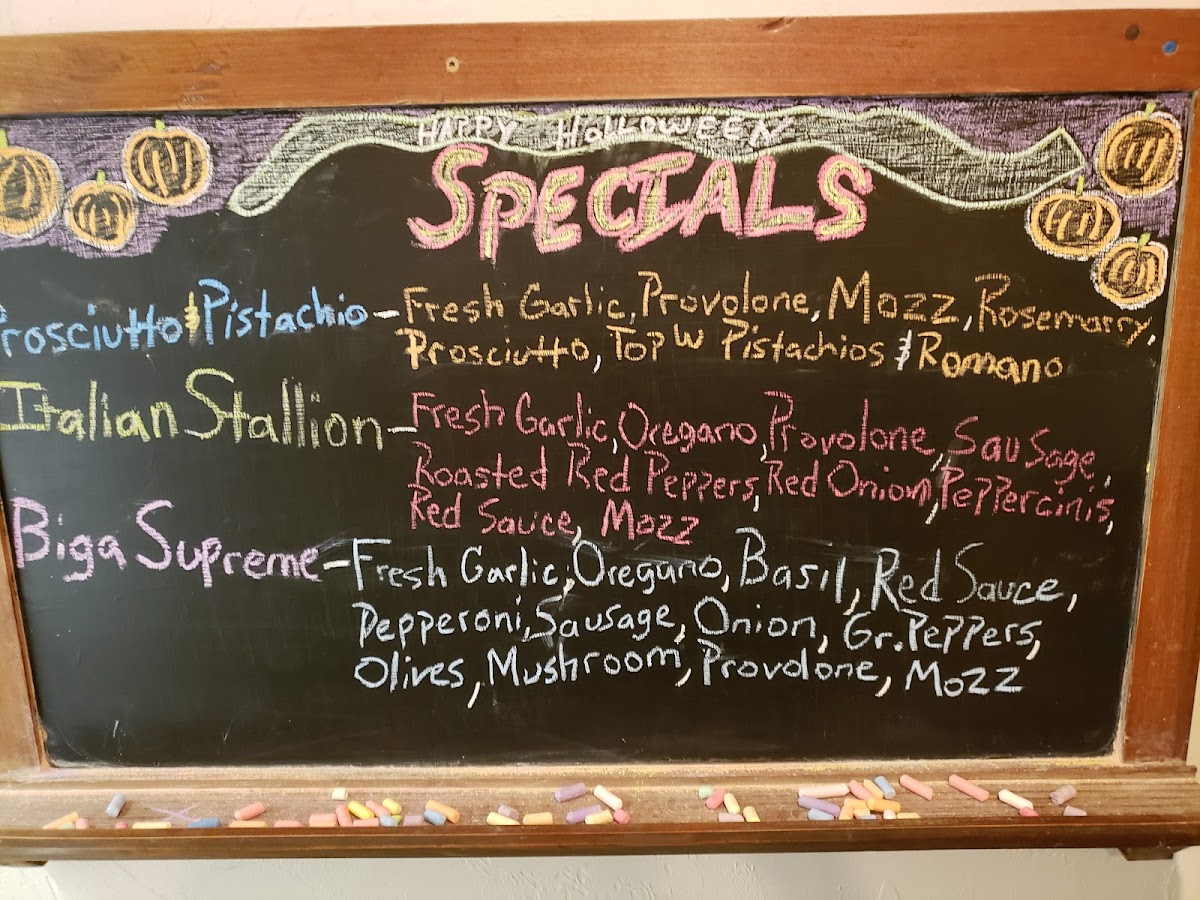 HAPPY HALLOWEEN
SPECIALS
Prosciutto & Pistachio - Fresh Garlic, Provolone, Mozz, Rosemarry,
Prosciutto, Top W Pistachios & Romano
Italian Stallion - Fresh Garlic, Oregano, Provolone, Sausage,
Roasted Red Peppers, Red Onion, Peppercinis,
Red Sauce, Mozz
Biga Supreme - Fresh Garlic, Oregano, Basil, Red Sauce,
Pepperoni, Sausage, Onion, Gr. Peppers,
Olives, Mushroom, Provolone, Mozz